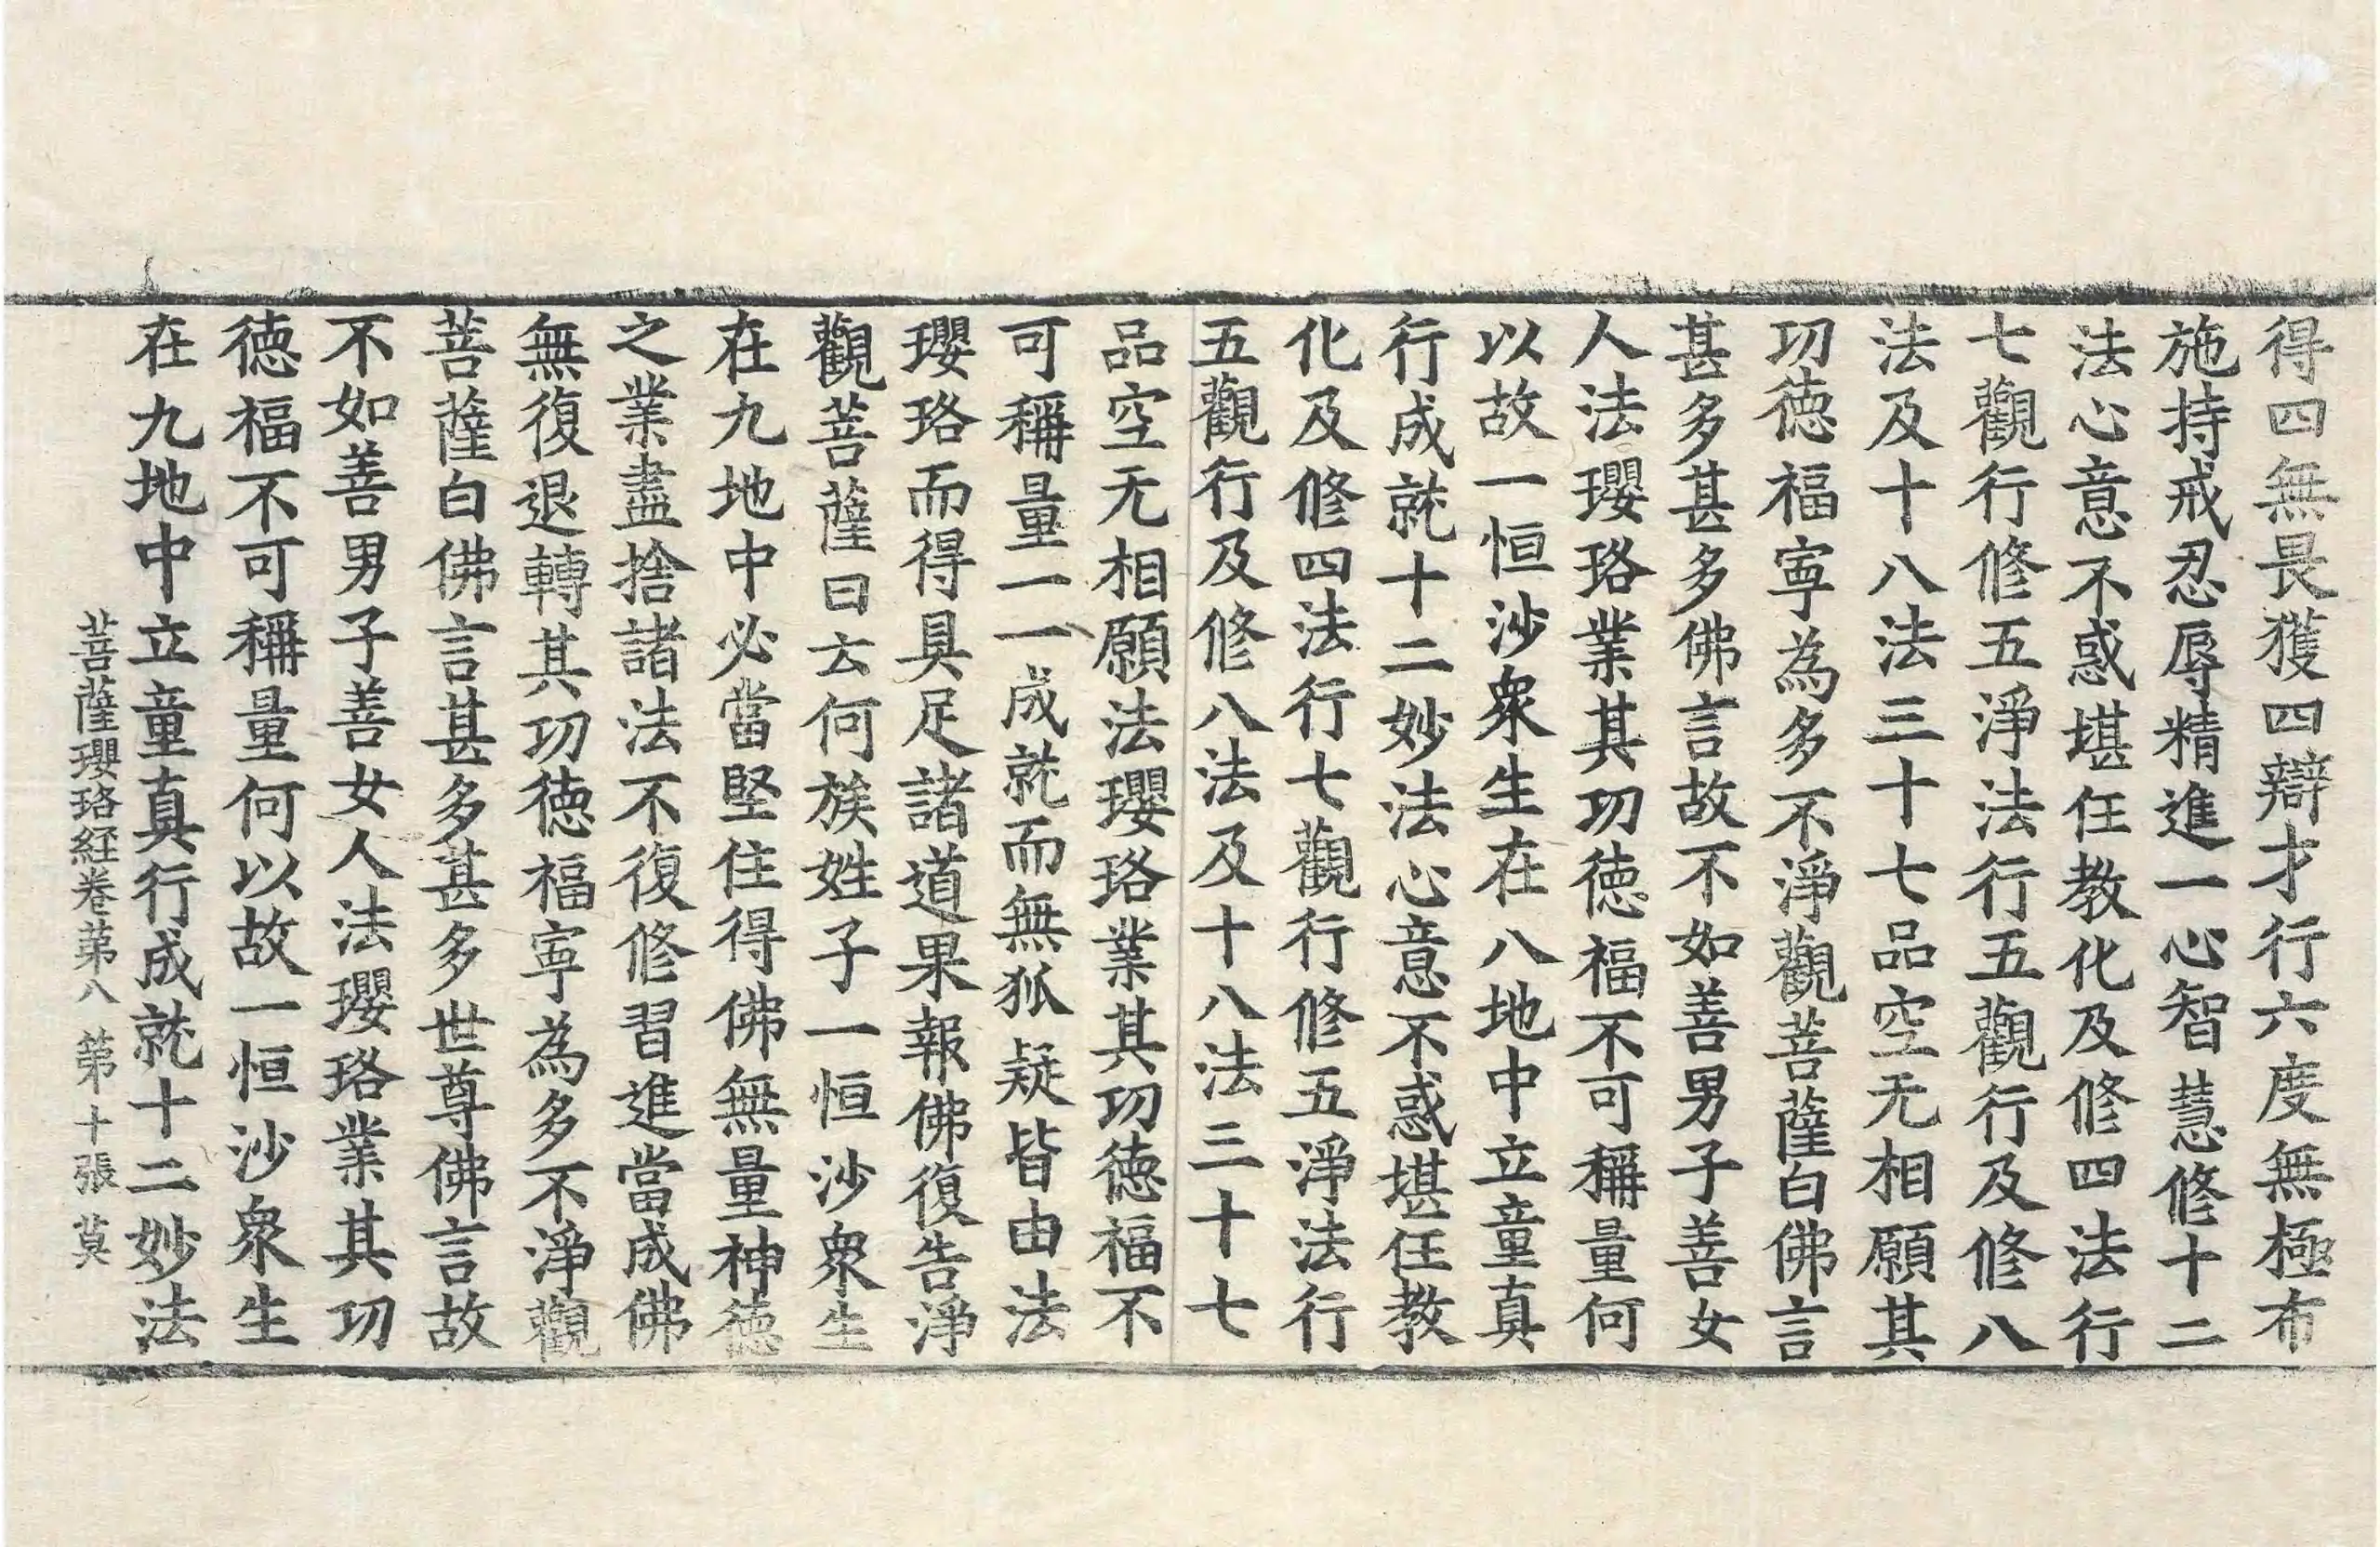 得四無畏獲四辯才行六度無極布
施持戒忍辱精進一心智慧修十二
法心意不惑堪任教化及修四法行
七觀行修五淨法行五觀行及修八
法及十八法三十七品空无相願其
功德福寧為多不淨觀菩薩白佛言
甚多甚多佛言故不如善男子善女
人法瓔珞業其功德福不可稱量何
以故一恒沙衆生在八地中立童真
行成就十二妙法心意不惑堪任教
化及修四法行七觀行修五淨法行
五觀行及修八法及十八法三十七
品空无相願法瓔珞業其功德福不
可稱量一一成就而無狐疑皆由法
瓔珞而得具足諸道果報佛復告淨
觀菩薩曰云何族姓子一恒沙衆生
在九地中必當堅住得佛無量神德
之業盡捨諸法不復修習進當成佛
無復退轉其功德福寧為多不淨觀
菩薩白佛言甚多甚多世尊佛言故
不如善男子善女人法瓔珞業其功
德福不可稱量何以故一恒沙衆生
在九地中立童真行成就十二妙法
菩薩瓔珞経卷第八 第十張 莫